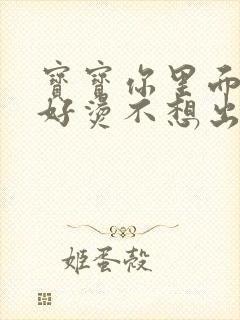 寶寶你里面
好燙不想出
姬蛋殼